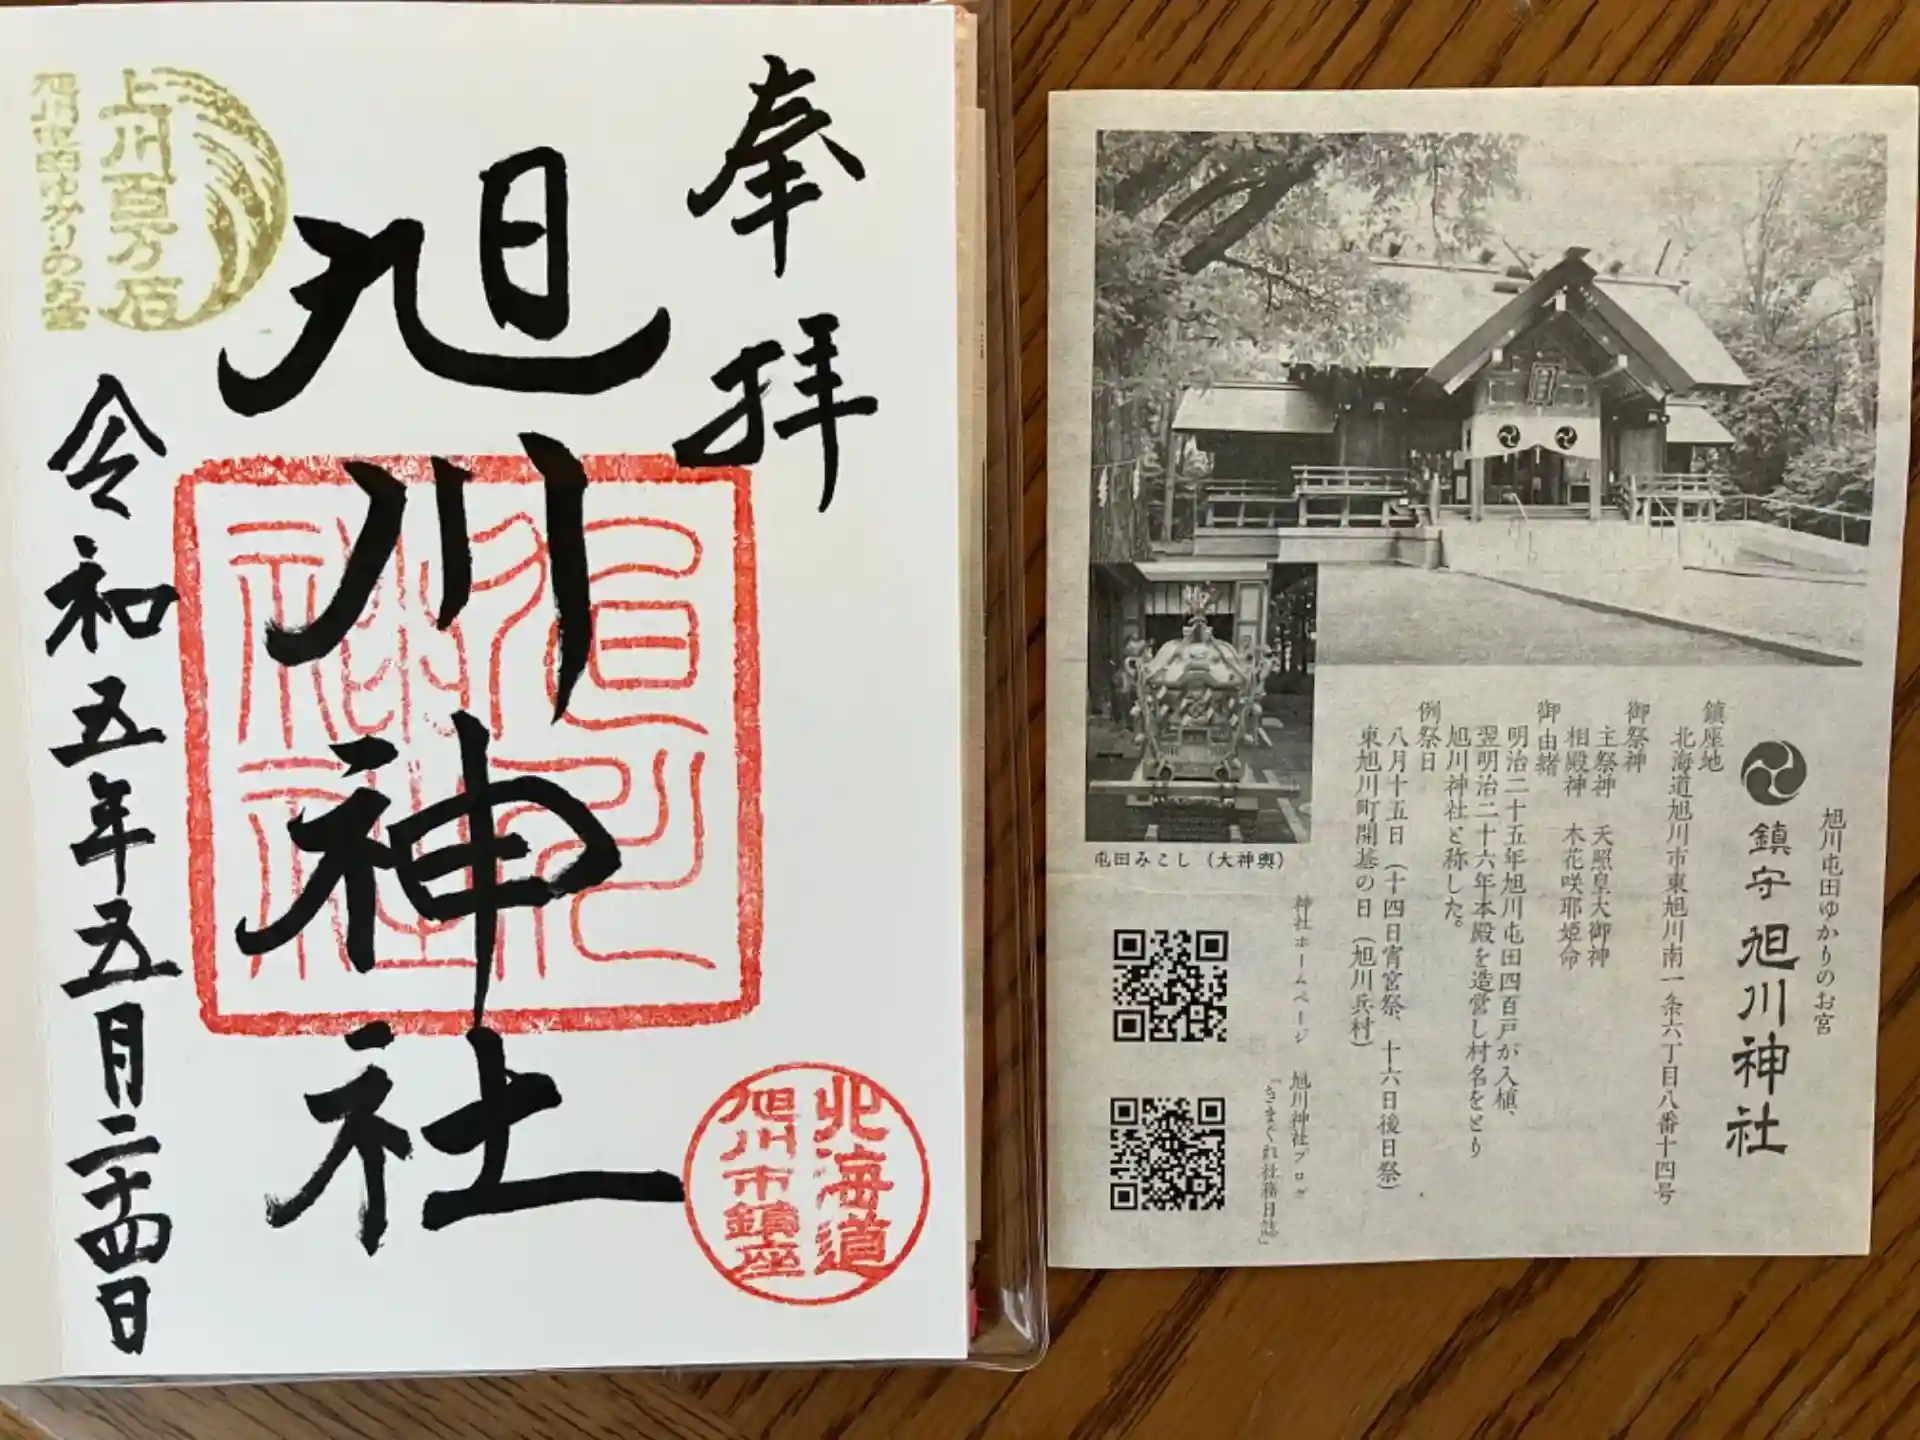 奉拝
旭川神社
令和五年五月二十四日
上川百万石
旭川屯田ゆかりのお宮
旭川神社
北海道
旭川市鎮座
旭川屯田ゆかりのお宮
鎮守 旭川神社
鎮座地
北海道旭川市東旭川南一条六丁目八番十四号
御祭神
主祭神 天照皇大御神
相殿神 木花咲耶姫命
御由緒
明治二十五年旭川屯田四百戸が入植、
翌明治二十六年本殿を造営し村名をとり
旭川神社と称した。
例祭日
八月十五日(十四日宵宮祭、十六日後日祭)
東旭川町開基の日(旭川兵村)
屯田みこし(大神輿)
神社ホームページ
旭川神社ブログ
「きまぐれ社務日誌」